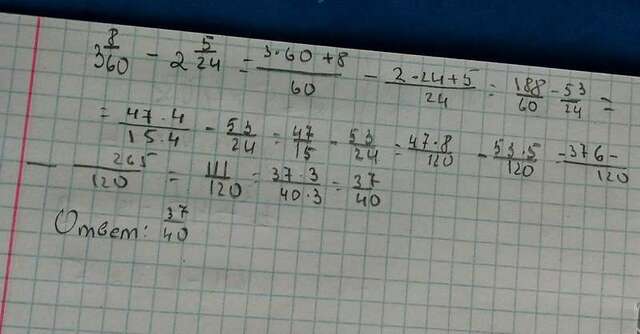 3 8/60 - 2 5/24 = (3·60+8)/60 - (2·24+5)/24 = 188/60 - 53/24 =
= (47·4)/(15·4) - 53/24 = 47/15 - 53/24 = (47·8)/120 - (53·5)/120 = (376-)/120
- 265/120 = 111/120 = (37·3)/(40·3) = 37/40
Ответ: 37/40